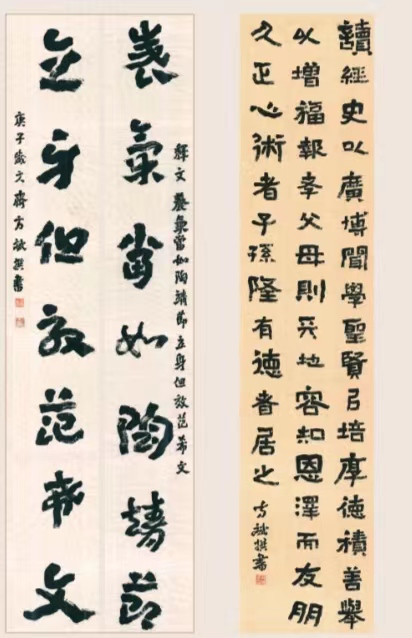 讀經史以廣博聞學聖賢㠯培厚德積善舉
以增福報孝父母則天地容知恩澤而友朋
久正心術者子孫隆有德者居之
方斌撰書
釋文 養氣當如陶靖節立身但放范希文
養氣當如陶靖節
立身但放范希文
庚子歲文齋方斌撰書